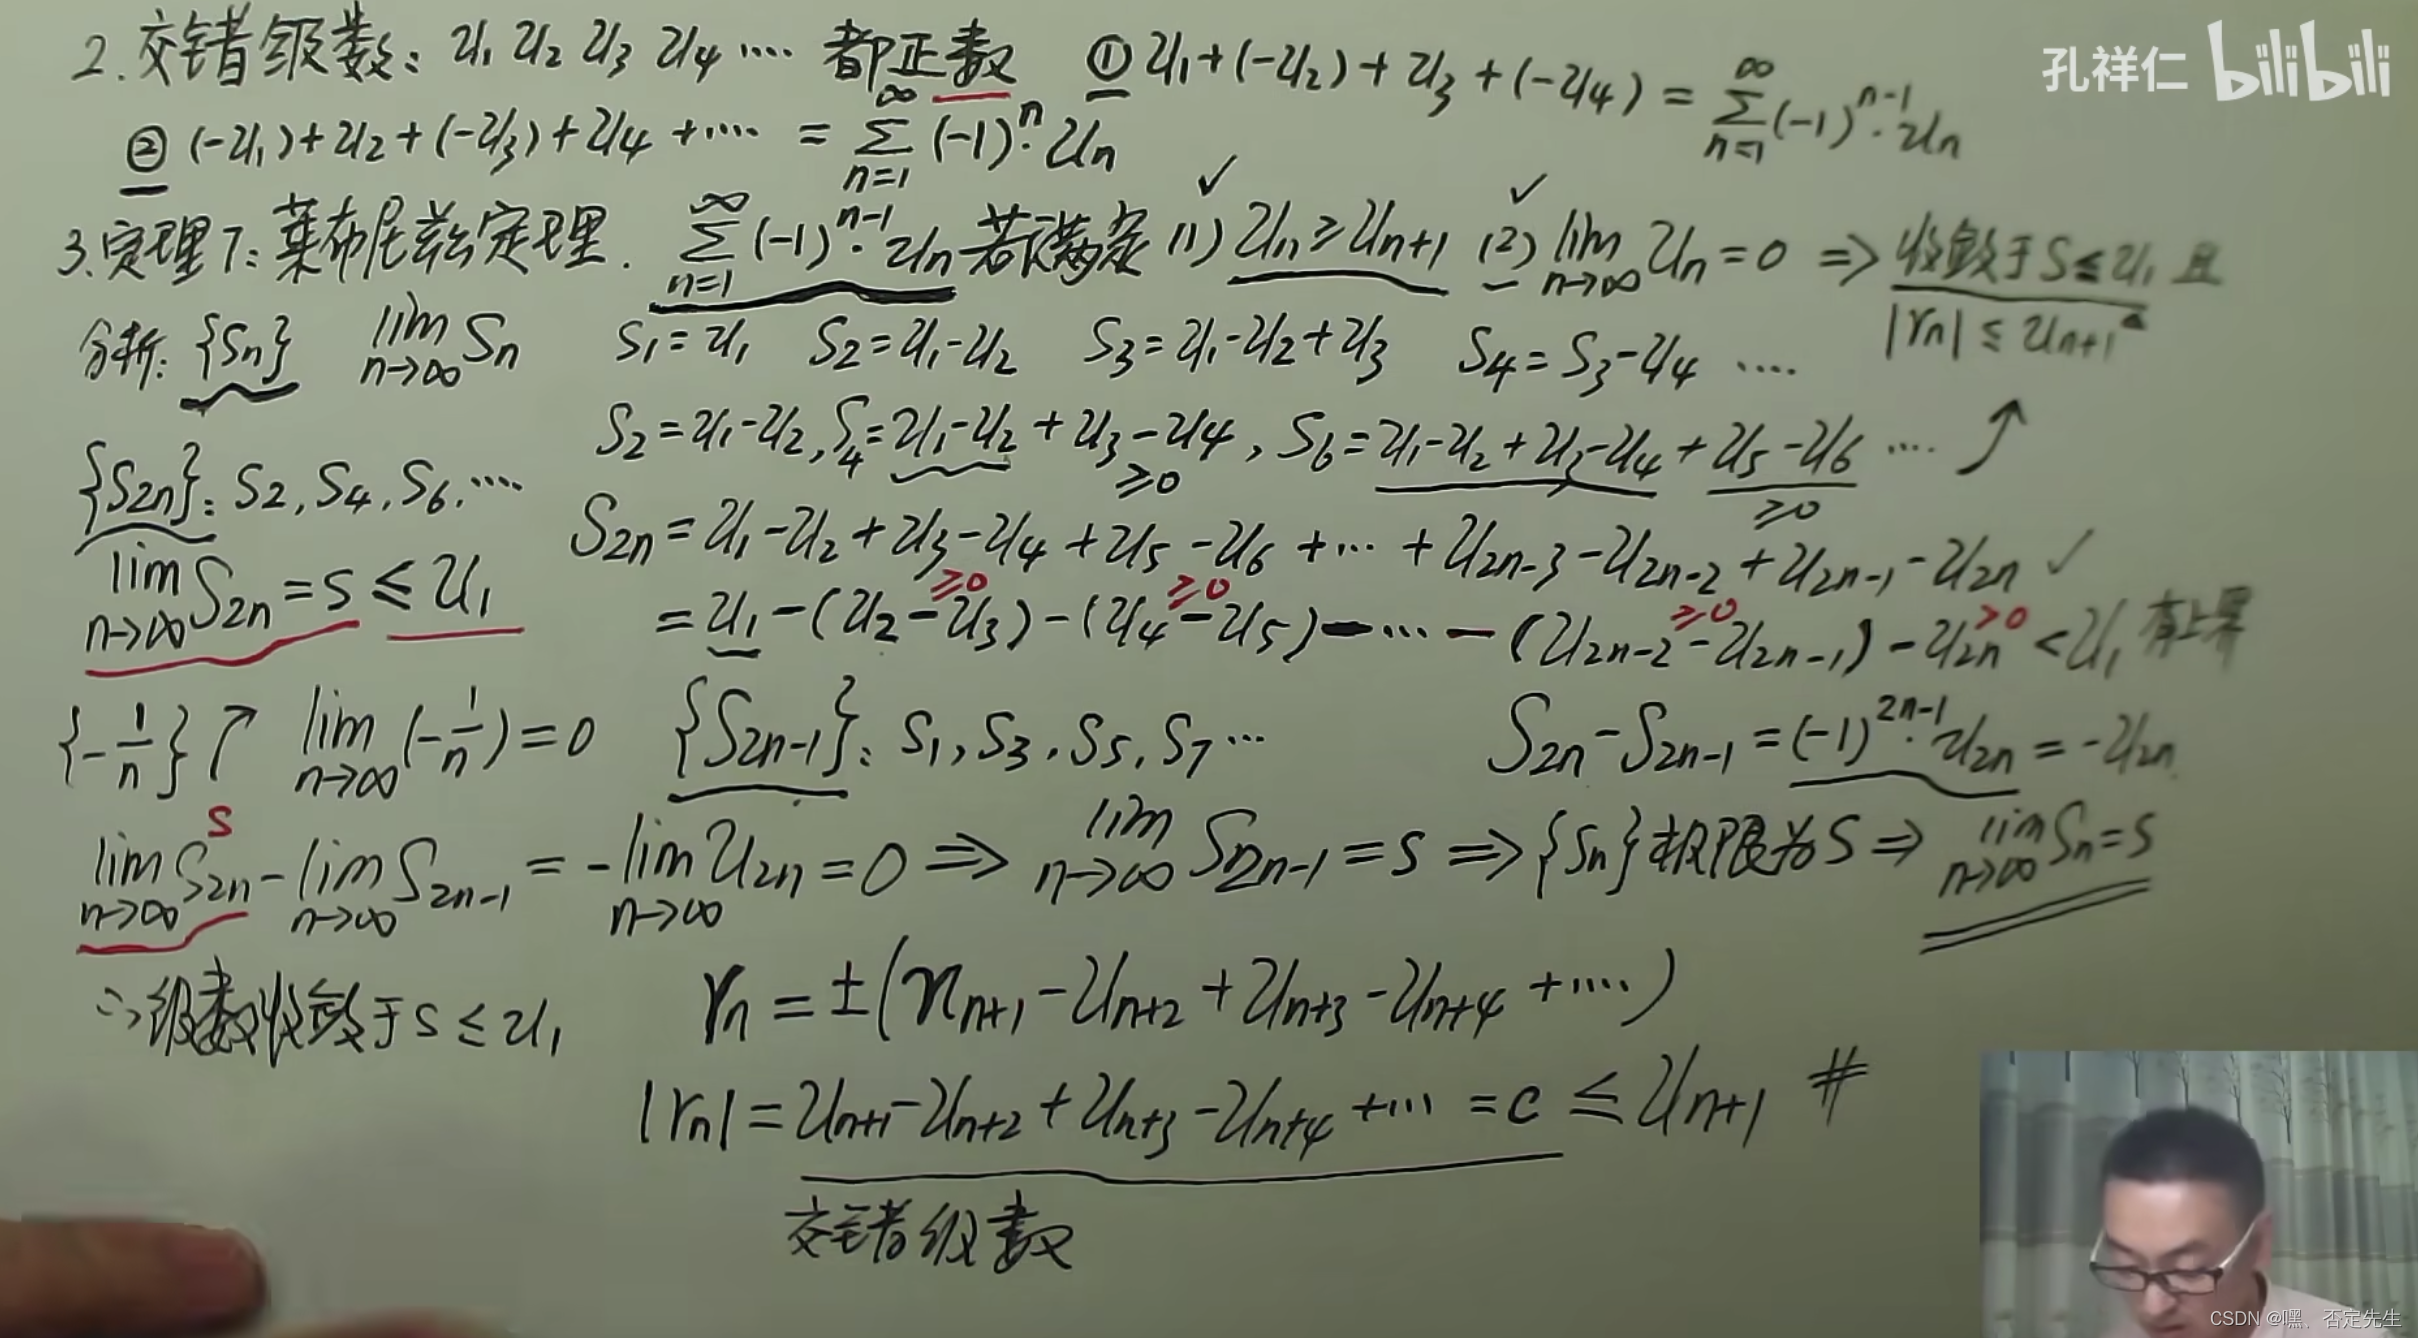 2. 交错级数: u₁ u₂ u₃ u₄ ···· 都正数 ① u₁+(-u₂)+u₃+(-u₄) = ∑_{n=1}^{∞} (-1)^{n-1}·u_n
② (-u₁)+u₂+(-u₃)+u₄+···· = ∑_{n=1}^{∞} (-1)^n·u_n
3. 定理7: 莱布尼兹定理. ∑_{n=1}^{∞} (-1)^{n-1}·u_n 若满足 (1) u_n ≥ u_{n+1} ✓ (2) lim_{n→∞} u_n = 0 ✓ ⇒ 收敛于 S ≤ u₁ 且
|r_n| ≤ u_{n+1}
分析: {S_n} lim_{n→∞} S_n S₁=u₁ S₂=u₁-u₂ S₃=u₁-u₂+u₃ S₄=S₃-u₄ ····
{S_{2n}}: S₂, S₄, S₆, ···· S₂=u₁-u₂, S₄=u₁-u₂+u₃-u₄, S₆=u₁-u₂+u₃-u₄+u₅-u₆ ····
≥0 ≥0
S_{2n} = u₁-u₂+u₃-u₄+u₅-u₆+···+u_{2n-3}-u_{2n-2}+u_{2n-1}-u_{2n} ✓
lim_{n→∞} S_{2n} = s ≤ u₁
≥0 ≥0 ≥0 >0
= u₁-(u₂-u₃)-(u₄-u₅)-···-(u_{2n-2}-u_{2n-1})-u_{2n} < u₁ 有上界
{-1/n}↗ lim_{n→∞}(-1/n)=0 {S_{2n-1}}: S₁, S₃, S₅, S₇ ··· S_{2n}-S_{2n-1} = (-1)^{2n-1}·u_{2n} = -u_{2n}
s
lim_{n→∞} S_{2n} - lim_{n→∞} S_{2n-1} = -lim_{n→∞} u_{2n} = 0 ⇒ lim_{n→∞} S_{2n-1} = s ⇒ {S_n} 极限为 S ⇒ lim_{n→∞} S_n = s
∴级数收敛于 s ≤ u₁ r_n = ±(u_{n+1}-u_{n+2}+u_{n+3}-u_{n+4}+····)
|r_n| = u_{n+1}-u_{n+2}+u_{n+3}-u_{n+4}+··· = c ≤ u_{n+1} #
交错级数
孔祥仁 bilibili
CSDN @嘿、否定先生